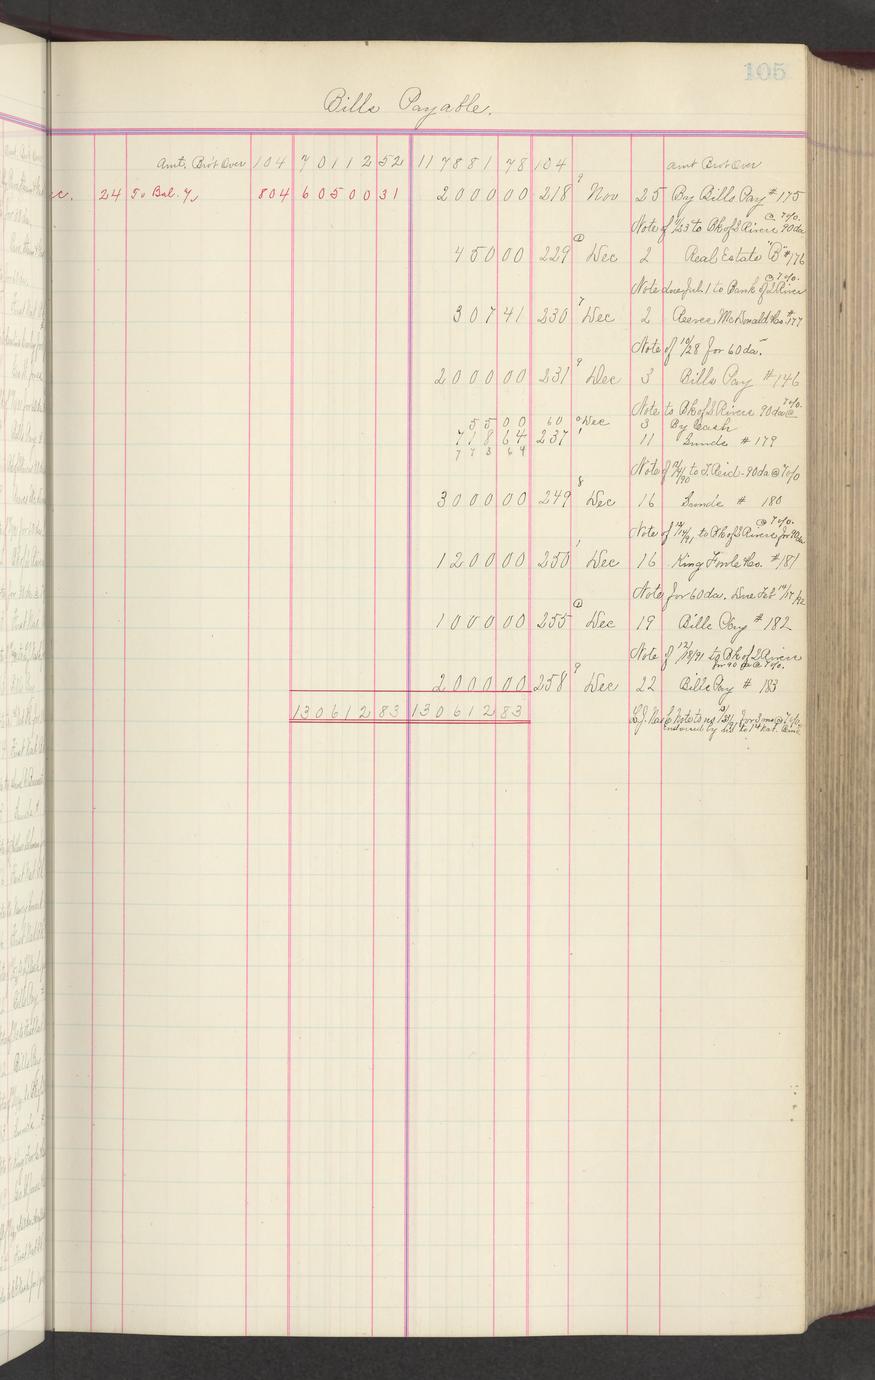 105
Bills Payable.
Amt. Bro't Over 104 70112 52 117881 78 104 amt Bro't Over
24 To Bal. 804 60500 31 2000 00 218 9 Nov 25 By Bills Pay #175
Note of to Bk of 2 Rivers 90 da @ 7%.
450 00 229 Dec 2 Real Estate "B" #176
Note due July 1 to Bank of 2 Rivers @ 7%.
307 41 230 7 Dec 2 Reeves McDonald Co. #177
Note of 10/28 for 60 da.
2000 00 231 9 Dec 3 Bills Pay #146
Note to Bk of 2 Rivers 90 da @ 7%.
55 00 60 Dec 3 By Cash
718 64 237 1 11 Sunds # 179
773 64
Note of to T. Reid - 90 da @ 7%
3000 00 249 8 Dec 16 Sunds # 180
Note of 12/14/91 to Bk of 2 Rivers for 90 da @ 7%.
1200 00 250 1 Dec 16 King Fowle & Co. #181
Note for 60 da. Due Feb
1000 00 255 Dec 19 Bills Pay # 182
Note of 12/18/91 to Bk of 2 Rivers
for 90 da @ 7%.
2000 00 258 9 Dec 22 Bills Pay # 183
130612 83 130612 83
Note to us for 3 mo @ 7%
endorsed by us to 1st Nat.